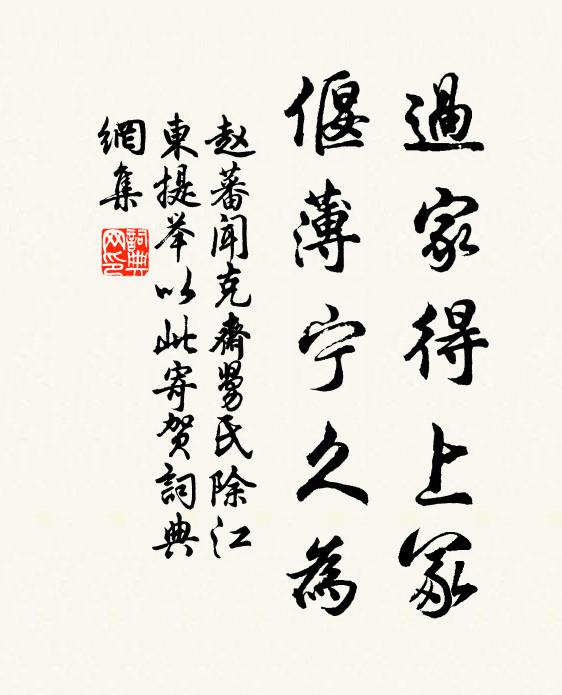 過家得上冢
偃薄宁久為
赵蕃闻克齋舅氏除江
東提举以此寄贺詞典
網集
詞典
网印